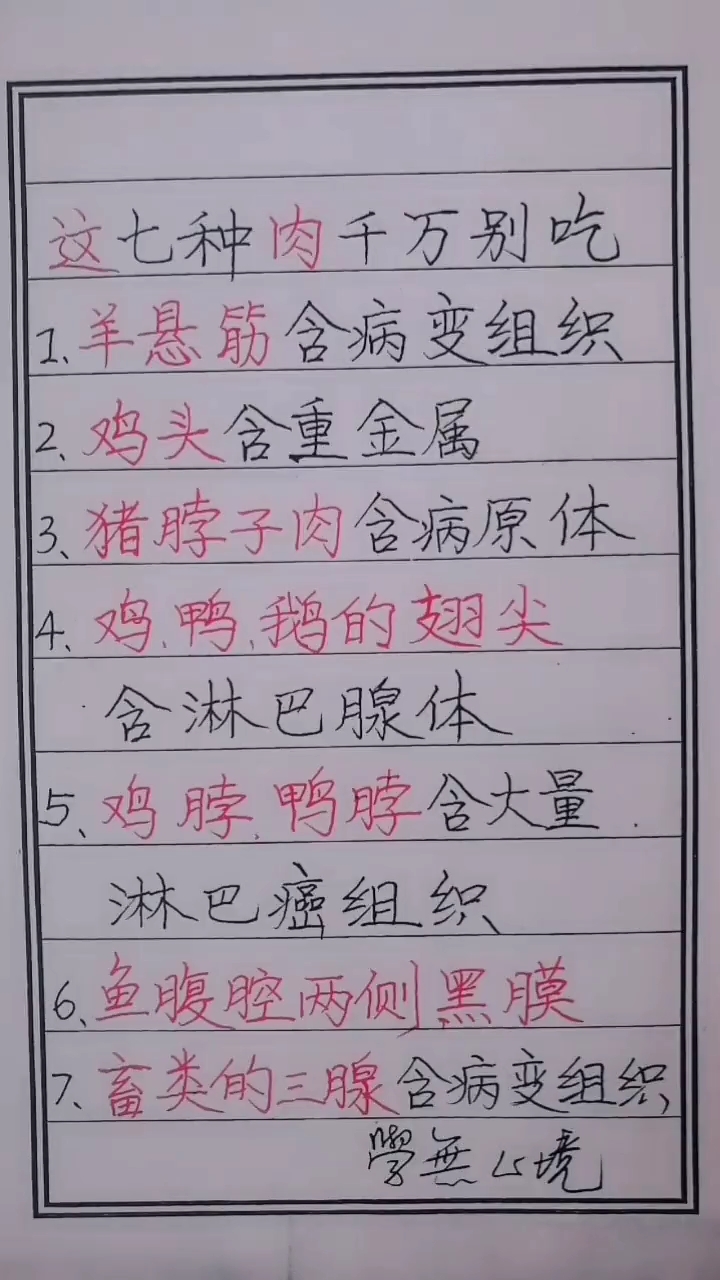 这七种肉千万别吃
1、羊悬筋含病变组织
2、鸡头含重金属
3、猪脖子肉含病原体
4、鸡、鸭、鹅的翅尖
含淋巴腺体
5、鸡脖、鸭脖含大量
淋巴癌组织
6、鱼腹腔两侧黑膜
7、畜类的三腺含病变组织
學無止境